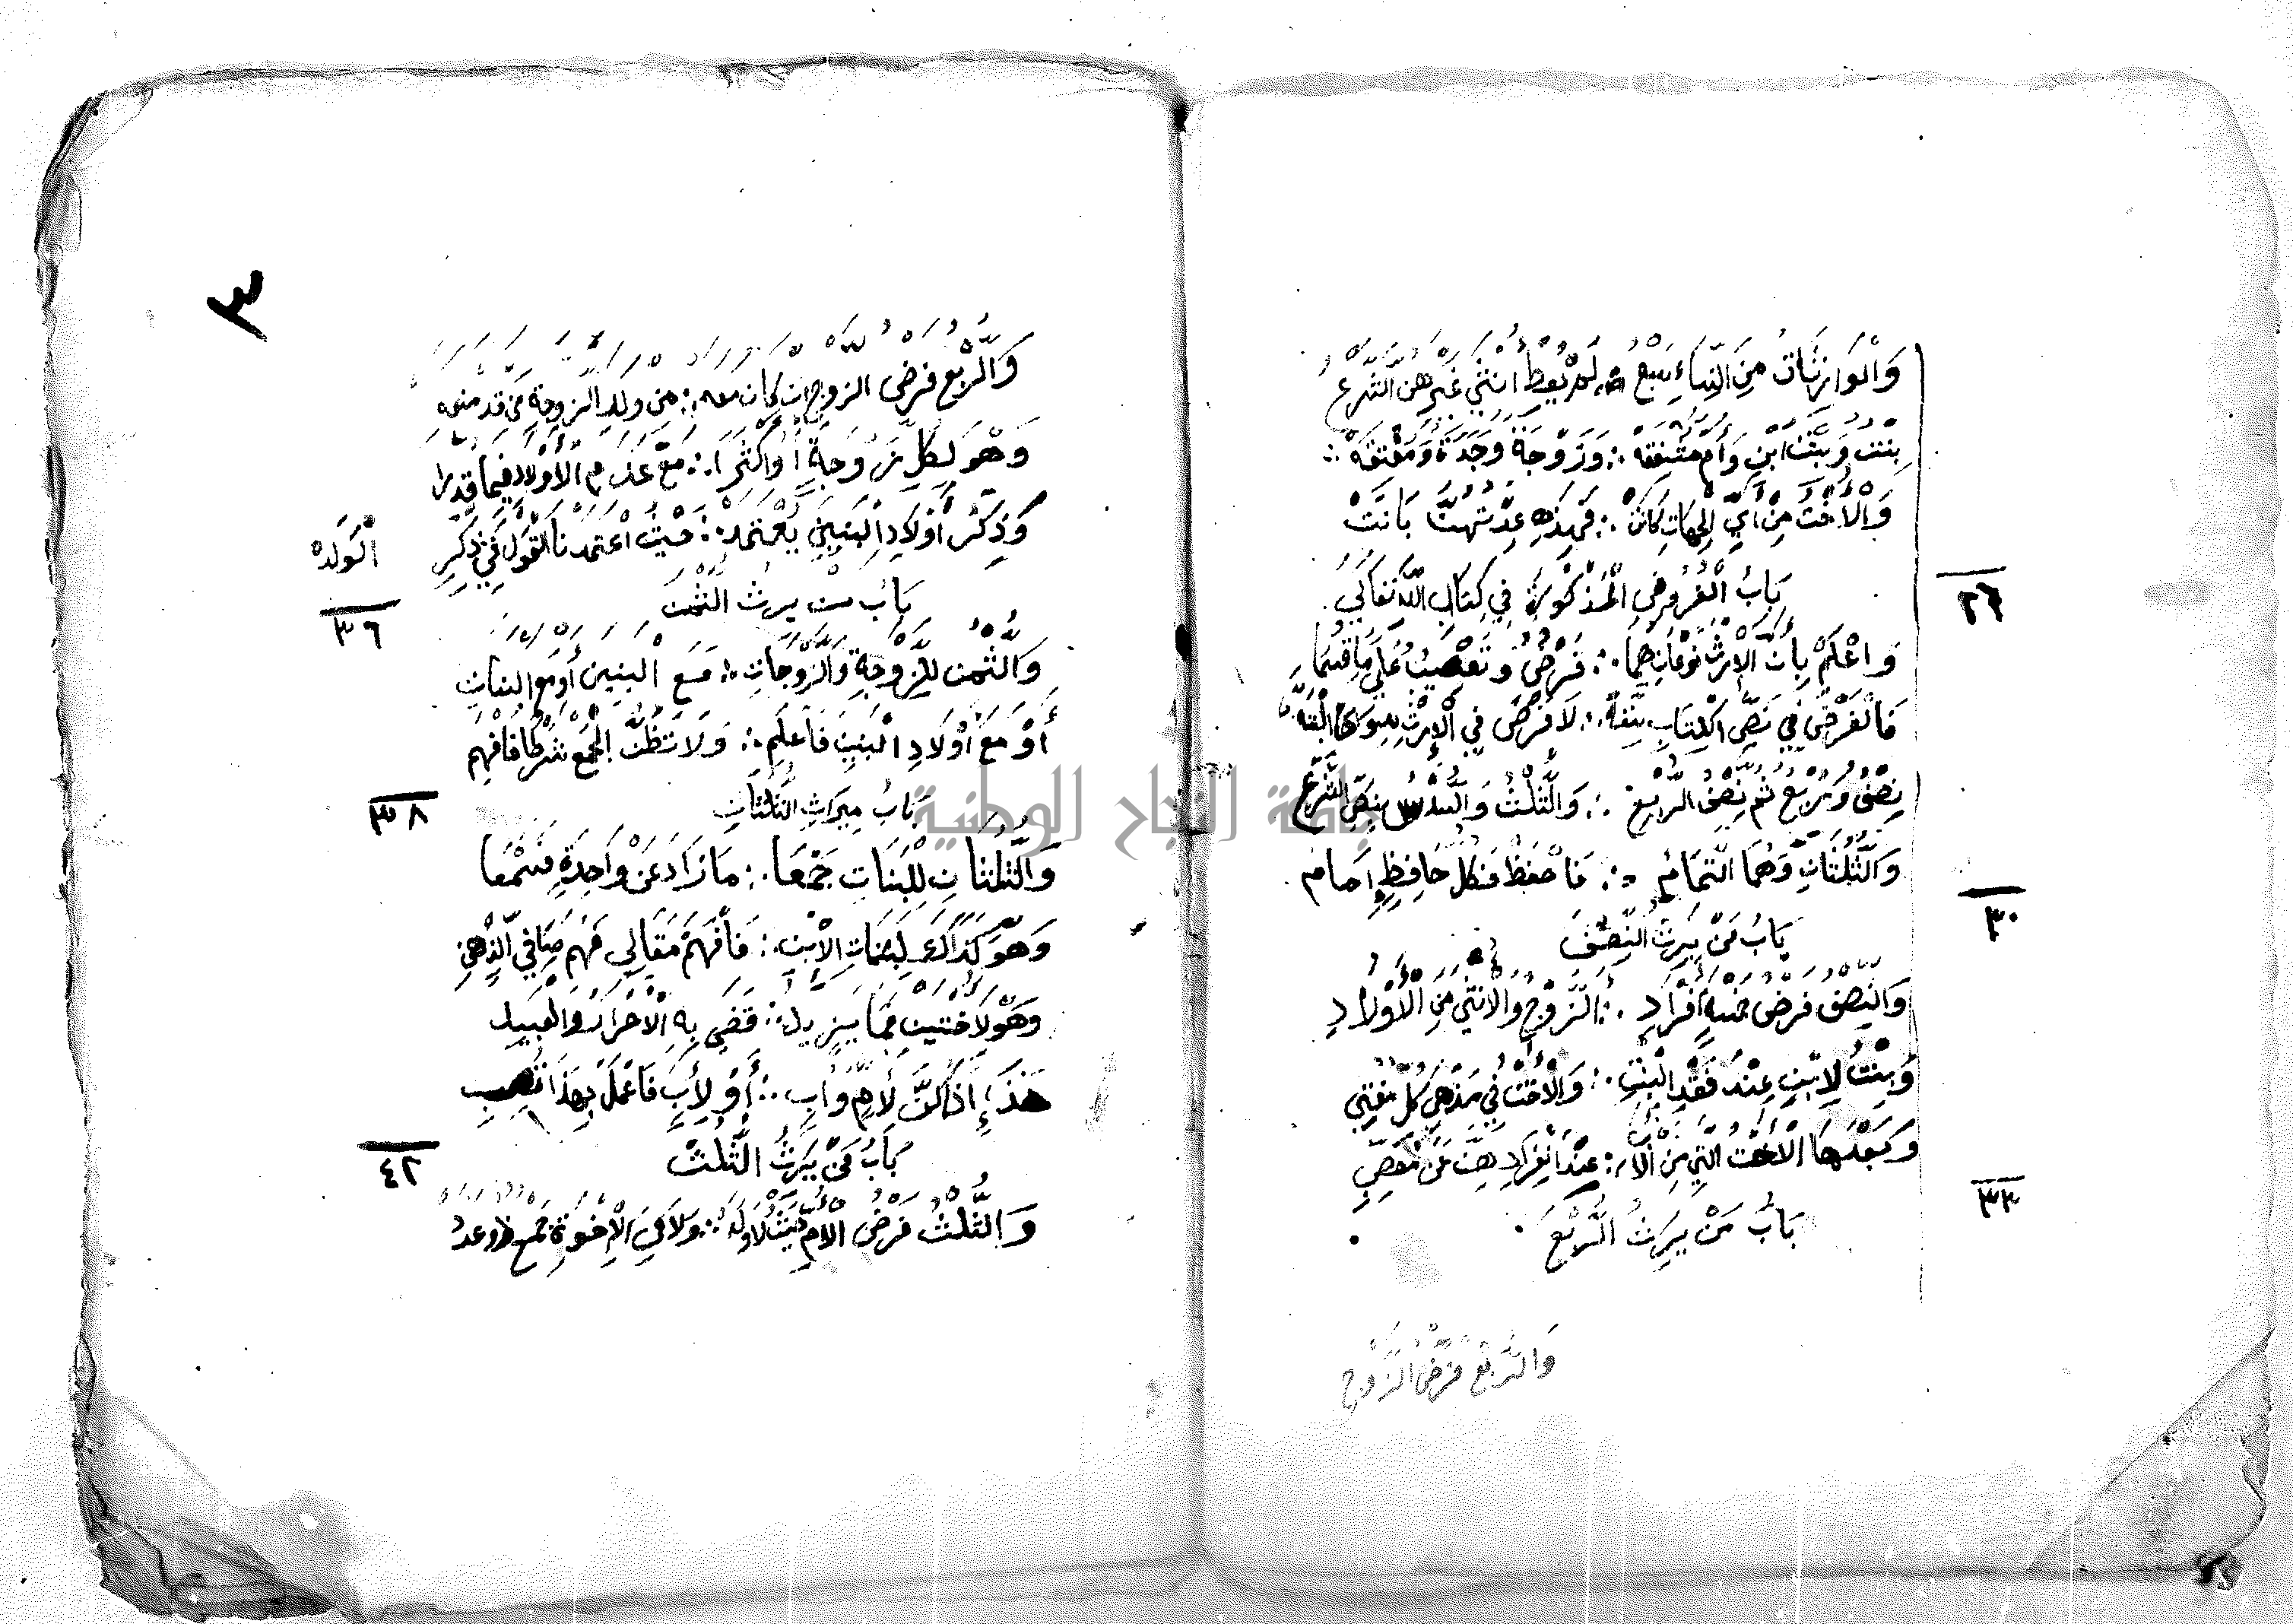 وَالْوَارِثَاتُ مِنَ النِّسَاءِ سَبْعُ ∴ لَمْ يُعْطِ أُنْثَى غَيْرَهُنَّ الشَّرْعُ
بِنْتٌ وَبِنْتُ ابْنٍ وَأُمٌّ مُشْفِقَهْ ∴ وَزَوْجَةٌ وَجَدَّةٌ وَمُعْتِقَهْ ∴
وَالْأُخْتُ مِنْ أَيِّ الْجِهَاتِ كَانَتْ ∴ فَهٰذِهِ عِدَّتُهُنَّ بَانَتْ
بَابُ الْفُرُوضِ الْمَذْكُورَةِ فِي كِتَابِ اللهِ تَعَالَى
٢٦
وَاعْلَمْ بِأَنَّ الْإِرْثَ نَوْعَانِ هُمَا ∴ فَرْضٌ وَتَعْصِيبٌ عَلَى مَا قُسِمَا
فَالْفَرْضُ فِي نَصِّ الْكِتَابِ سِتَّهْ ∴ لَا فَرْضَ فِي الْإِرْثِ سِوَاهَا الْبَتَّهْ
نِصْفٌ وَرُبْعٌ ثُمَّ نِصْفُ الرُّبْعِ ∴ وَالثُّلْثُ وَالسُّدْسُ بِنَصِّ الشَّرْعِ
وَالثُّلُثَانِ وَهُمَا التَّمَامُ ∴ فَاحْفَظْ فَكُلُّ حَافِظٍ إِمَامُ
٣٠
بَابُ مَنْ يَرِثُ النِّصْفَ
وَالنِّصْفُ فَرْضُ خَمْسَةٍ أَفْرَادِ ∴ الزَّوْجُ وَالْأُنْثَى مِنَ الْأَوْلَادِ
وَبِنْتُ لِابْنٍ عِنْدَ فَقْدِ الْبِنْتِ ∴ وَالْأُخْتُ فِي مَذْهَبِ كُلِّ مُفْتِي
وَبَعْدَهَا الْأُخْتُ الَّتِي مِنَ الْأَبِ ∴ عِنْدَ انْفِرَادِهِنَّ عَنْ مُعَصِّبِ
٣٣
بَابُ مَنْ يَرِثُ الرُّبْعَ
وَالرُّبْعُ فَرْضُ الزَّوْجِ
٣
وَالرُّبْعُ فَرْضُ الزوج إن كَانَ معه ∴ مِنْ وَلَدِ الزَّوْجَةِ مَنْ قَدْ مَنَعَهْ
وَهْوَ لِكُلِّ زَوْجَةٍ أَوْ أَكْثَرَا ∴ مَعْ عَدَمِ الْأَوْلَادِ فِيمَا قُدِّرَا
وَذِكْرُ أَوْلَادِ الْبَنِينَ يُعْتَمَدْ ∴ حَيْثُ اعْتَمَدْنَا الْقَوْلَ فِي ذِكْرِ
الْوَلَدْ
بَابُ مَنْ يرث الثُّمُنَ
٣٦
وَالثُّمْنُ لِلزَّوْجَةِ وَالزَّوْجَاتِ ∴ مَعَ الْبَنِينَ أَوْ مَعَ الْبَنَاتِ
أَوْ مَعَ أَوْلَادِ الْبَنِينَ فَاعْلَمِ ∴ وَلَا تَظُنَّ الْجَمْعَ شَرْطًا فَافْهَمِ
بَابُ مِيرَاثِ الثُّلُثَانِ
٣٨
وَالثُّلُثَانِ لِلْبَنَاتِ جَمْعَا ∴ مَا زَادَ عَنْ وَاحِدَةٍ فَسَمْعَا
وَهْوَ كَذَاكَ لِبَنَاتِ الْاِبْنِ ∴ فَافْهَمْ مَقَالِي فَهْمَ صَافِي الذِّهْنِ
وَهْوَ لِأُخْتَيْنِ فَمَا يَزِيدُ ∴ قَضَى بِهِ الْأَحْرَارُ وَالْعَبِيدُ
هَذَا إِذَا كُنَّ لِأُمٍّ وَأَبِ ∴ أَوْ لِأَبٍ فَاعْمَلْ بِهَذَا تُصِبِ
بَابُ مَنْ يَرِثُ الثُّلُثَ
٤٢
وَالثُّلْثُ فَرْضُ الْأُمِّ حَيْثُ لَا وَلَدْ ∴ وَلَا مِنَ الْإِخْوَةِ جَمْعٌ ذُو عَدَدْ
جامعة النجاح الوطنية